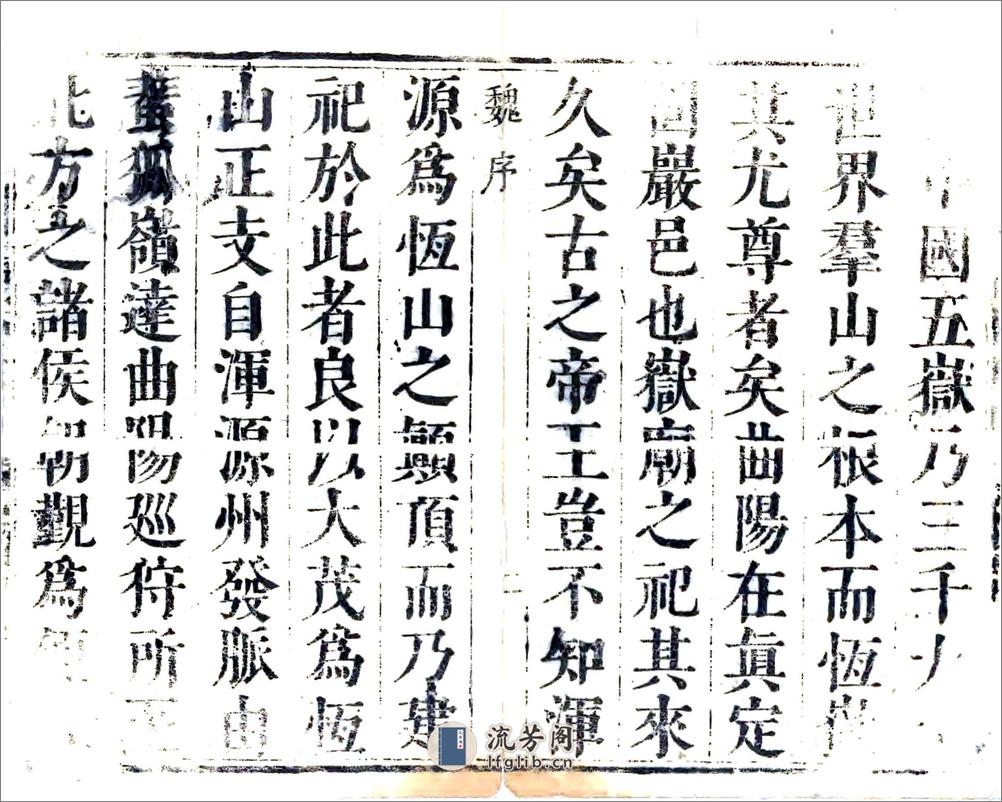 中國五嶽乃三千大
世界羣山之根本而恆嶽
其尤尊者矣曲陽在眞定
固巖邑也嶽廟之祀其來
久矣古之帝王豈不知渾
魏序
二
源爲恆山之顛頂而乃建
祀於此者良以大茂爲恆
山正支自渾源州發脈由
蜚狐嶺達曲陽廵狩所至
北方之諸侯如朝覲爲
流芳阁
lfglib.cn